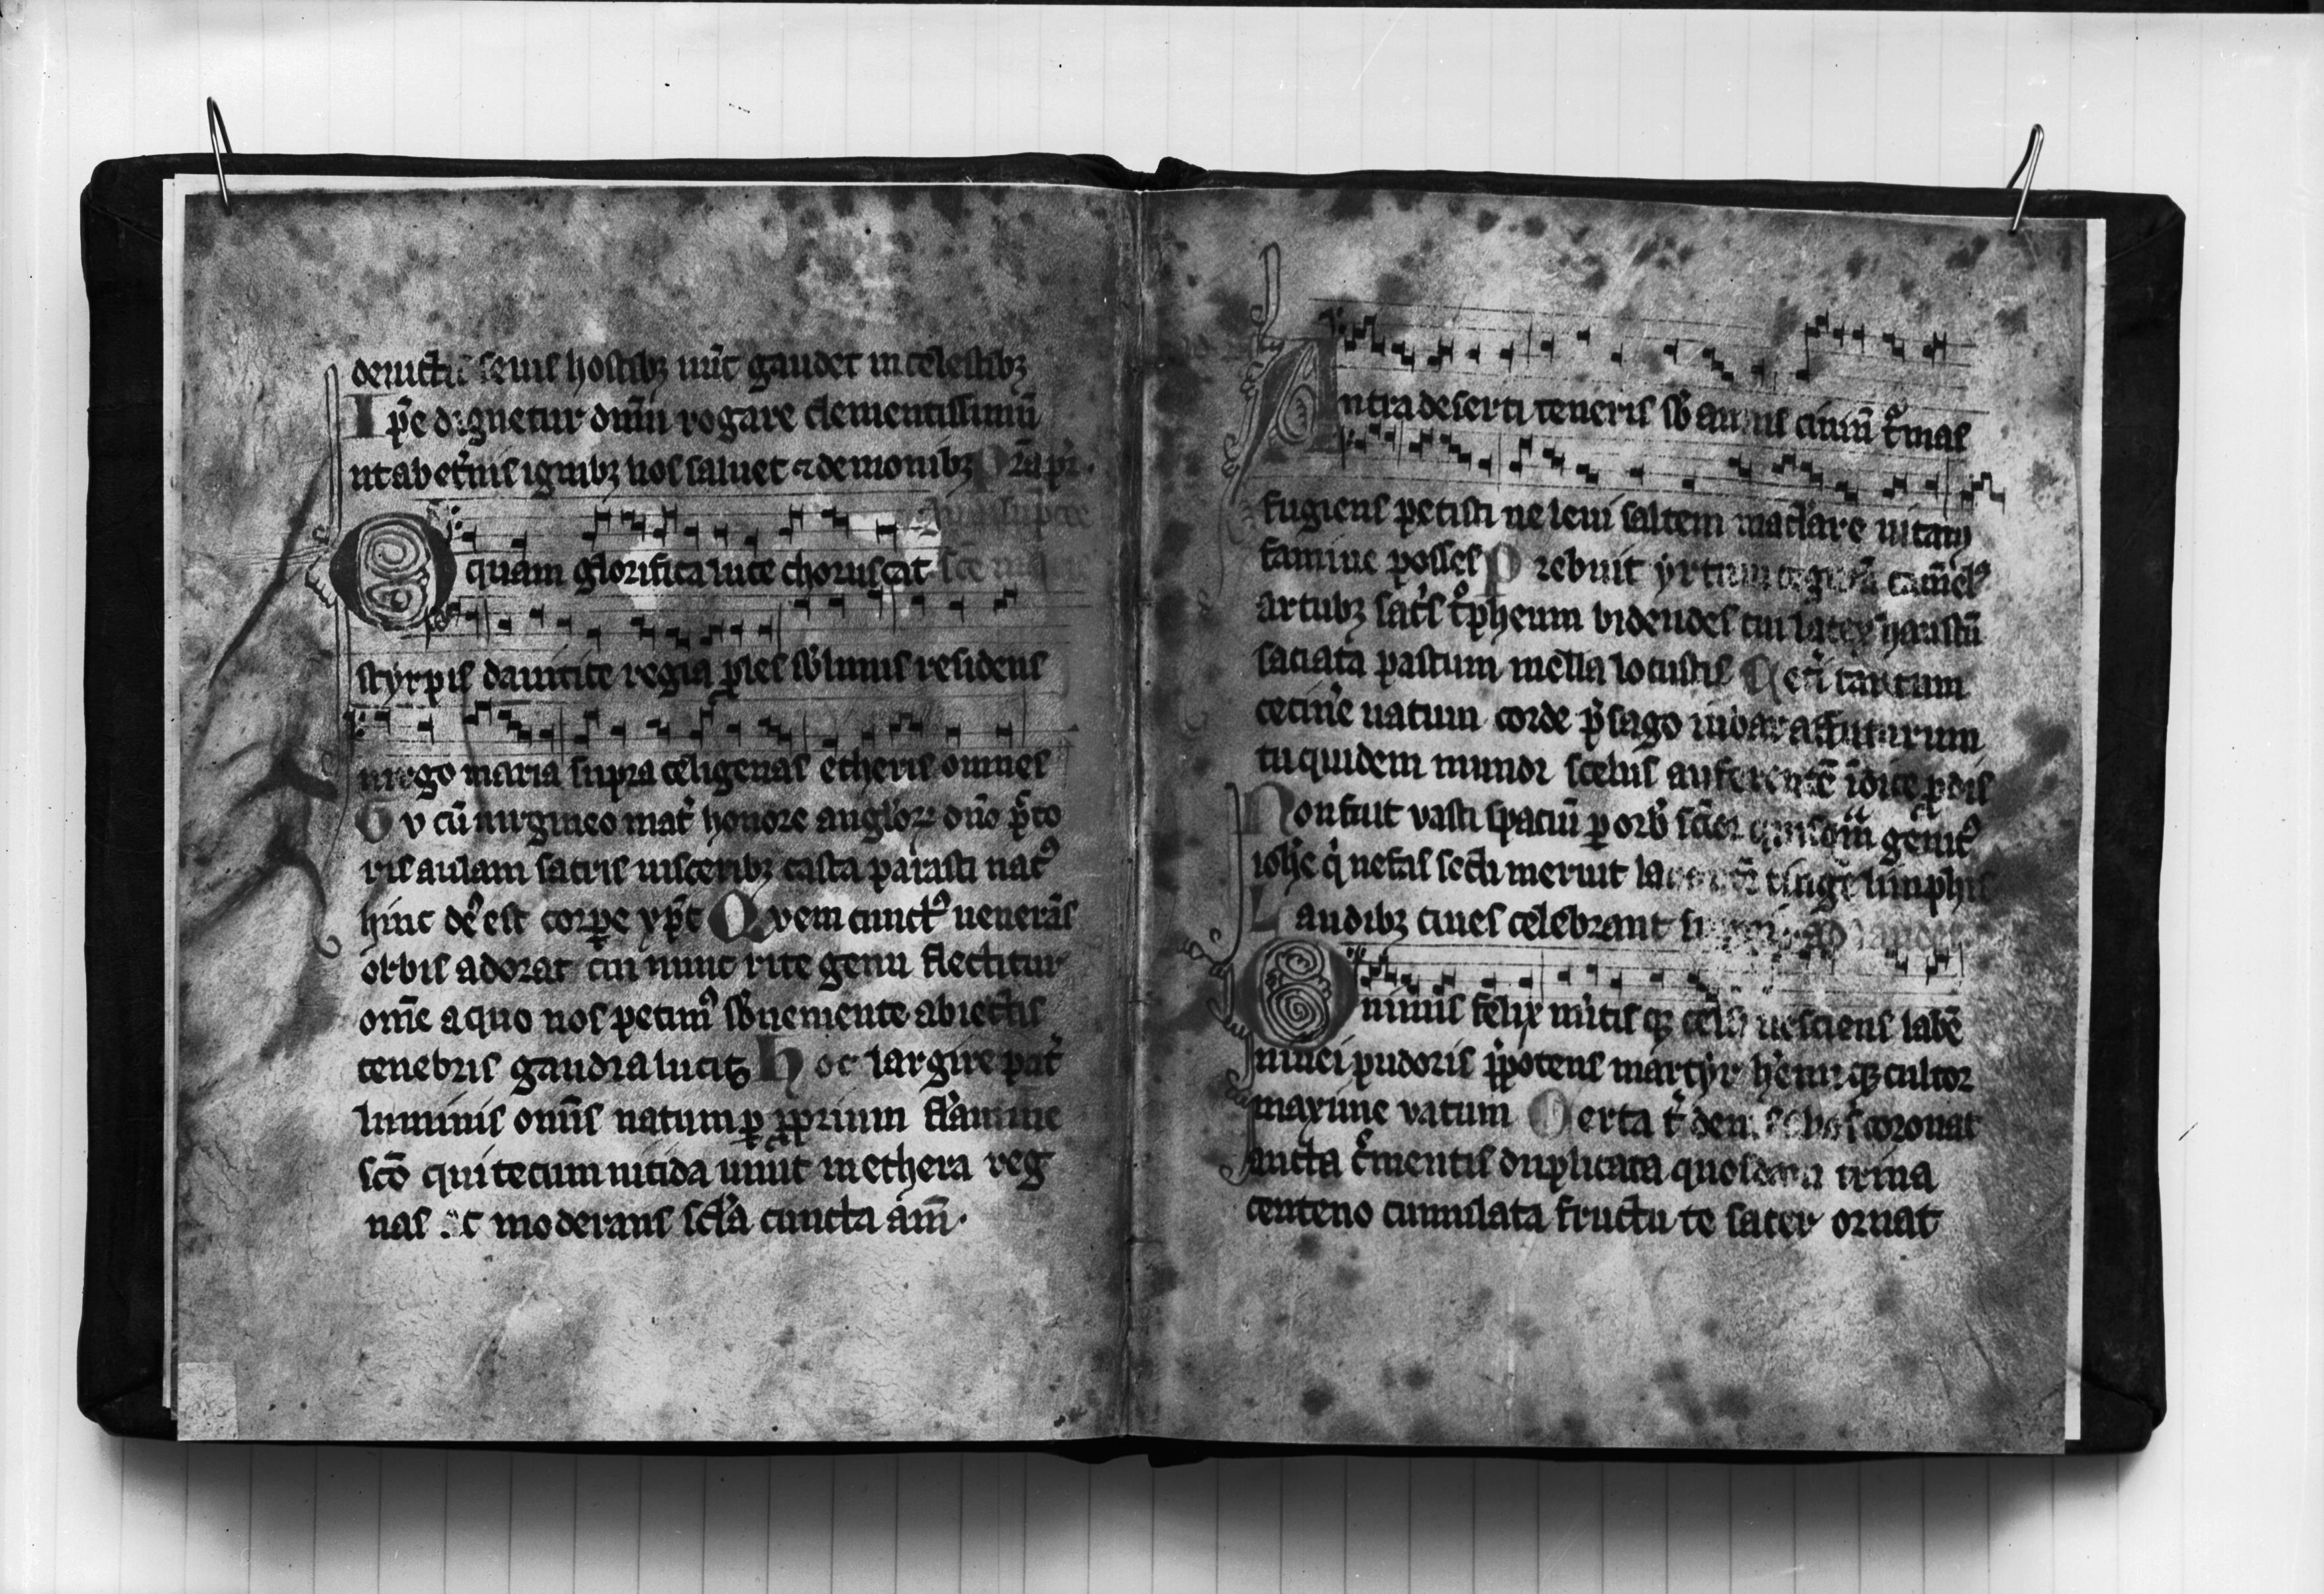 deuictis seuis hostibꝫ nūc gaudet in celestibꝫ
Ip̄e dignetur dn̄m rogare clementissimū
ut ab et̓nis ignibꝫ nos saluet ⁊ demonibꝫ
O quam glorifica luce choruscat
styrpis dauitice regia ꝓles sb̓limis residens
uirgo maria supra celigenas etheris omnes
Tv cū uirgineo mat̓ honore angloꝝ dn̄o p̄cto
ris aulam sacris uisceribꝫ casta parasti natꝰ
hinc de᷒ est corꝑe xp̄c Qvem cunctꝰ uenerās
orbis adorat cui nunc rite genu flectitur
om̄e a quo nos petimꝰ sb̓ueniente abiectis
tenebris gaudia lucis Hoc largire pat̓
luminis om̄s natum ꝑ ꝓprium flamine
sc̄o qui tecum nitida uiuit in ethera reg
nas ac moderans sc̄la cuncta am̄.
Antra deserti teneris sb̓ annis ciuiū t̓mas
fugiens petisti ne leui saltem maclare uitam
famine posses Prebuit yrtum tegum̄ camelꝰ
artubꝫ sac̓s st̓pheum bidendes cui latex haustū
saciata pastum mella locustis Cet̓i tantum
cecine̓ uatum corde p̄sago iubar affuturum
tu quidem mundi scelus auferentē īdice ꝓdis
Non fuit vasti spaciū ꝑ orb̓ sc̄ior quisqm̄ genitꝰ
ioh̓e q̓ nefas secli meruit lauantē tinge᷒ limphis
Laudibꝫ ciues celebrant
O nimis felix mitis qꝫ celsi nesciens labē
niuei pudoris p̄potens martyr h̓emi qꝫ cultor
maxime vatum Serta t̓ denis coronat
aucta c̓mentis duplicata quosdam trina
centeno cumulata fructu te sacer ornat